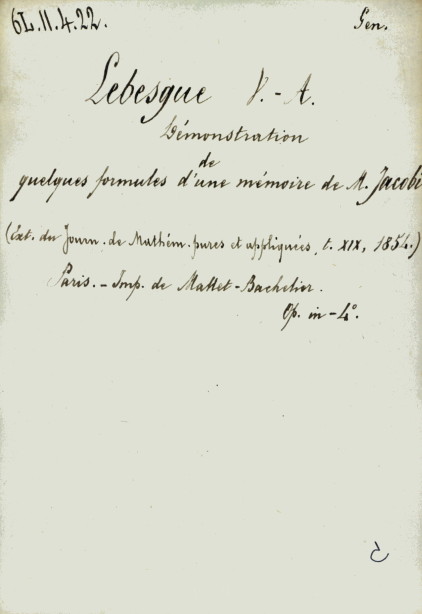 6L.11.4.22. Gen.
Lebesgue V.-A.
Démonstration
de
quelques formules d'une mémoire de M. Jacobi
(Ext. du Journ. de Mathém. pures et appliquées, t. XIX, 1854.)
Paris. - Imp. de Mallet-Bachelier.
Op. in-4°.